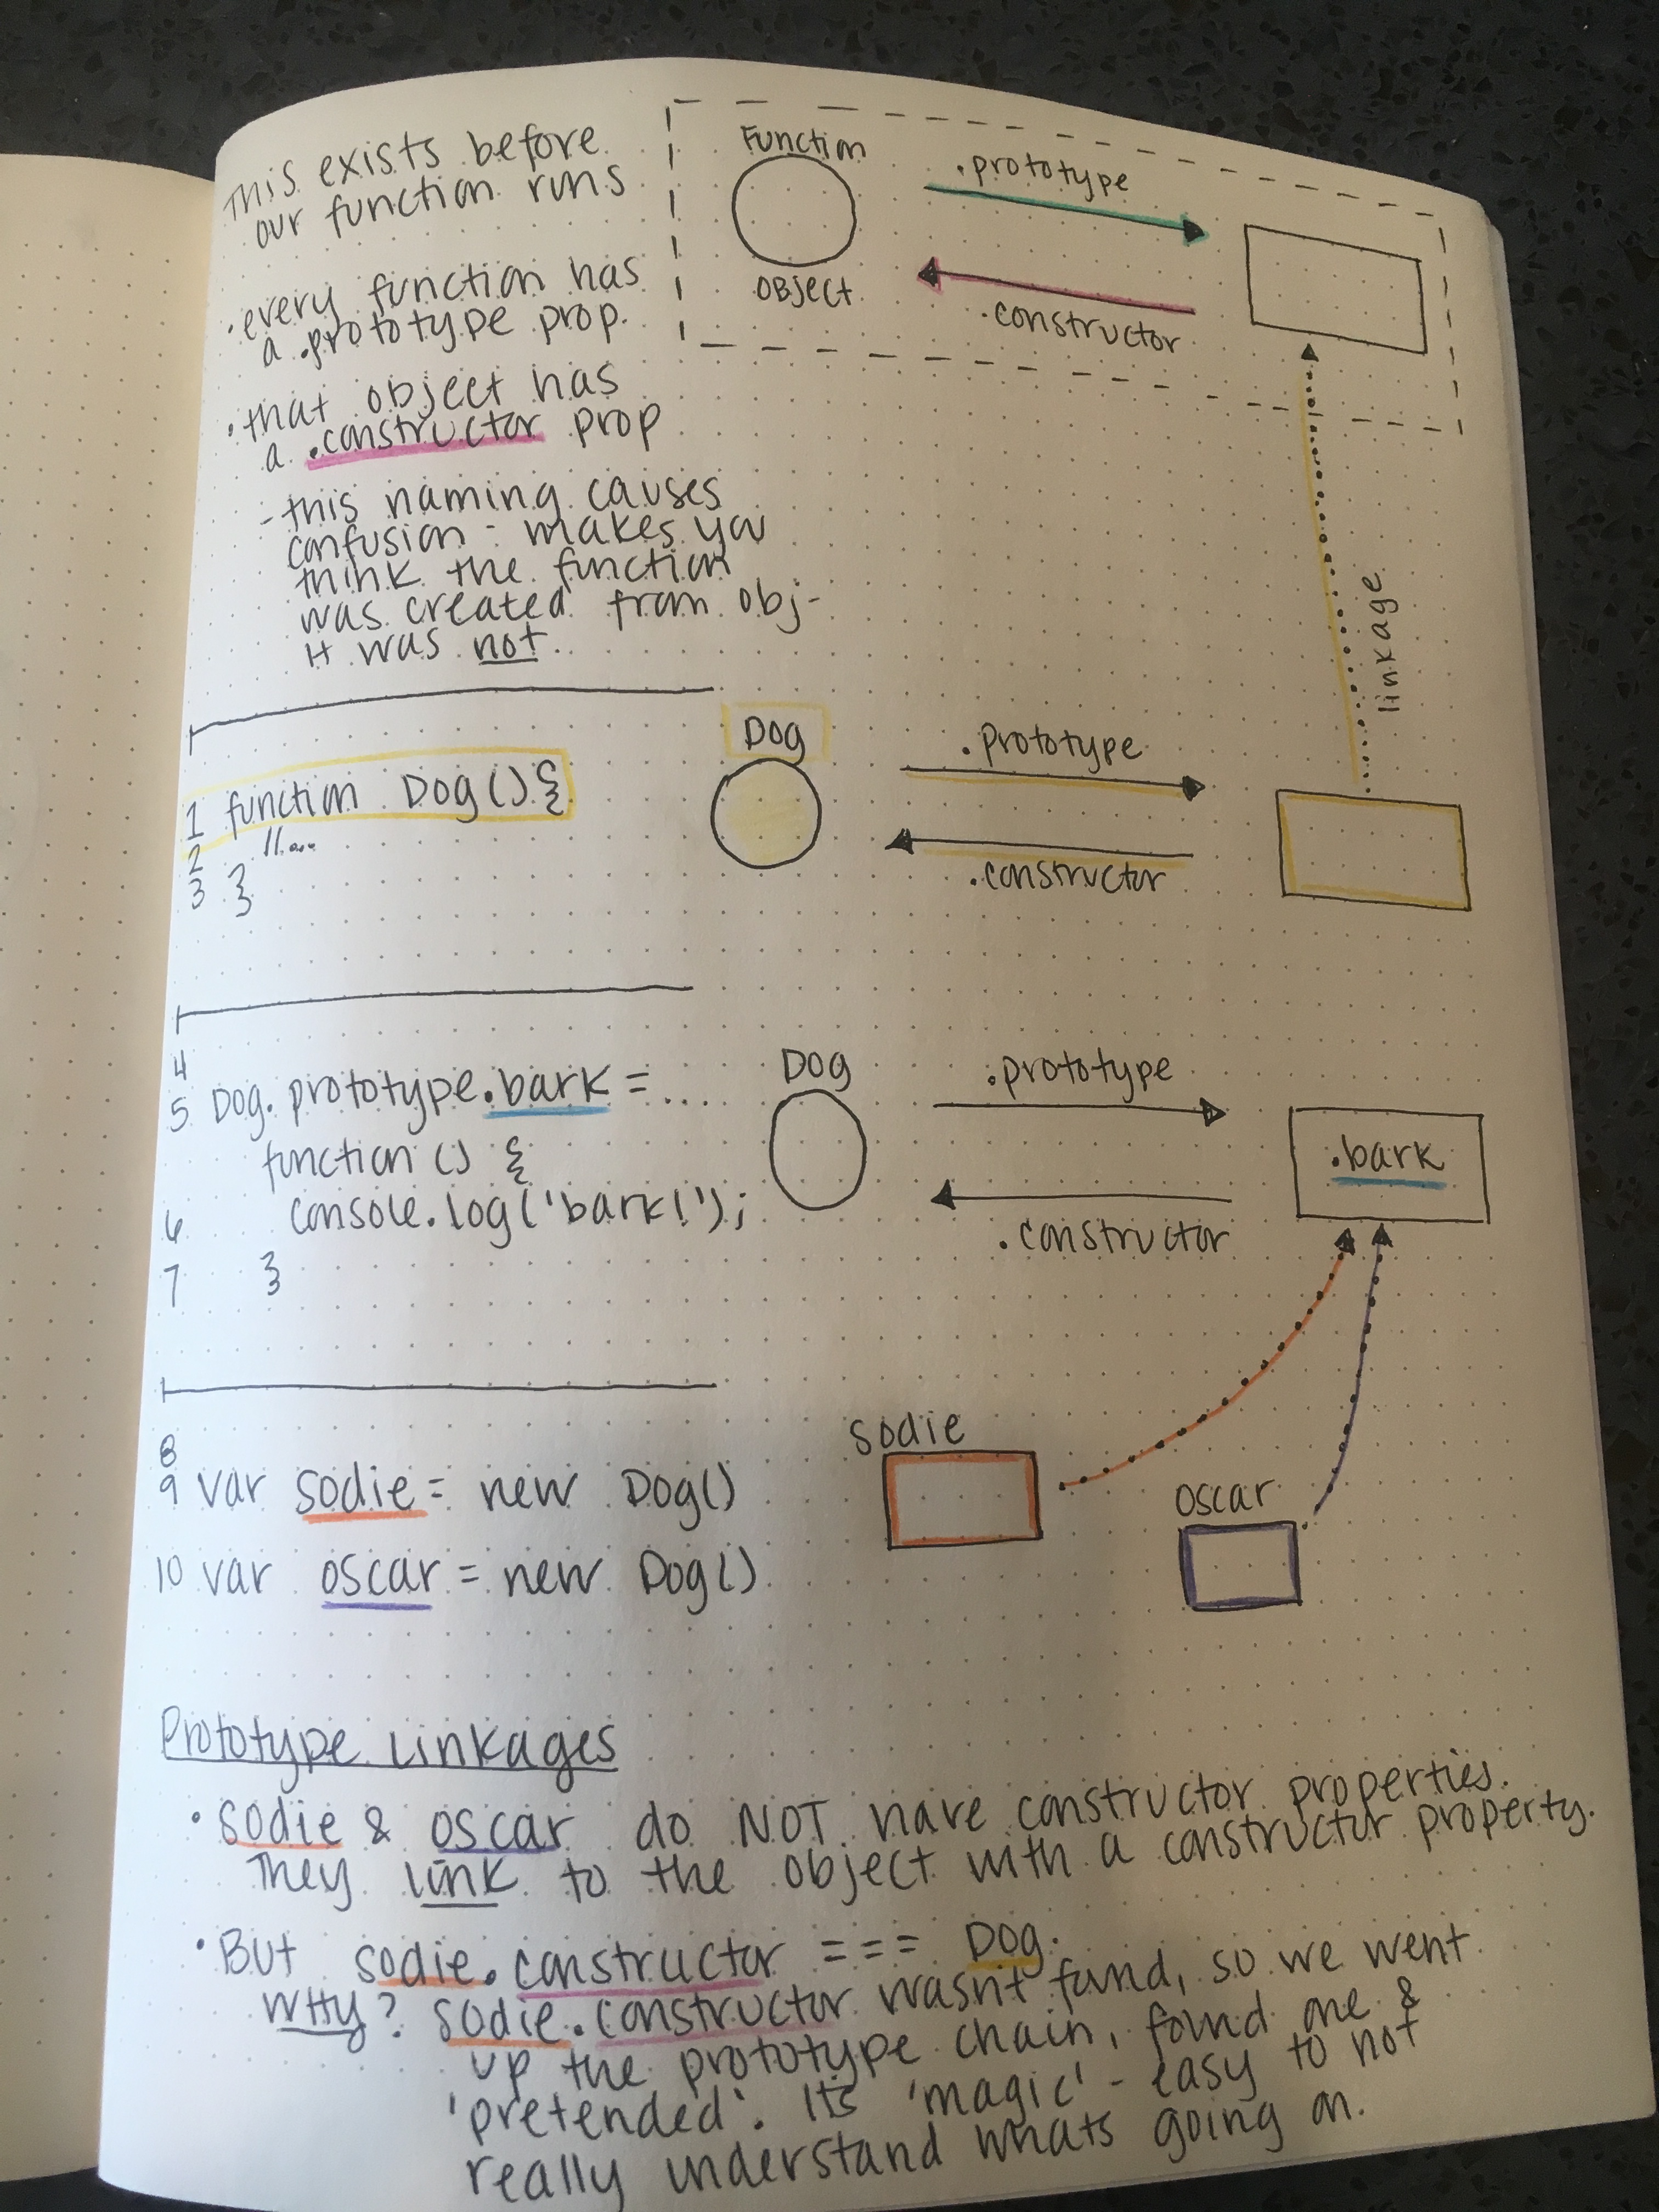 This exists before
our function runs
• every function has
a .prototype prop.
• that object has
a .constructor prop
- this naming causes
confusion - makes you
think the function
was created from obj -
it was not.
Function
Object
.prototype
.constructor
linkage
1 function Dog() {
2 //...
3 }
Dog
.prototype
.constructor
4
5 Dog.prototype.bark = ...
function () {
6 console.log('bark!');
7 }
Dog
.prototype
.constructor
.bark
8
9 var sodie = new Dog()
10 var oscar = new Dog()
sodie
oscar
Prototype Linkages
• sodie & oscar do NOT have constructor properties.
They link to the object with a constructor property.
• But sodie.constructor === Dog.
WHY? sodie.constructor wasnt found, so we went
up the prototype chain, found one &
'pretended'. Its 'magic' - easy to not
really understand whats going on.